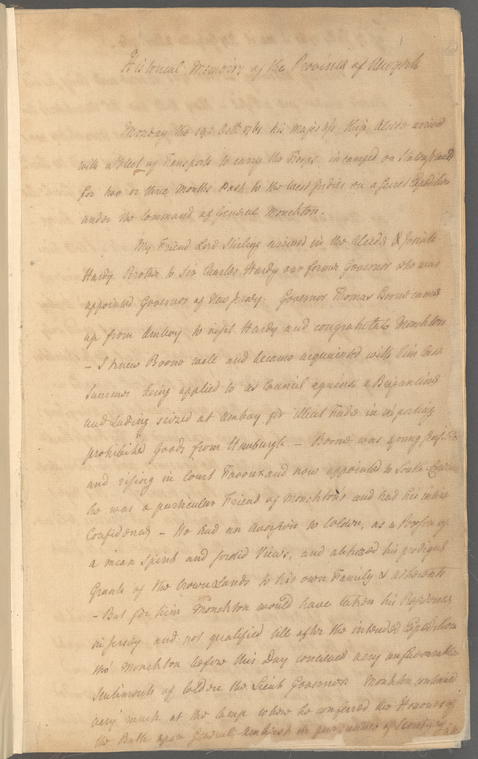 Historical Memoirs of the Province of New York
Monday the 19th Octr. 1761 his Majesty's Ship Alcide arrived
with a Fleet of Transports to carry the Troops incamped on Staten Island
for two or three Months past to the West Indies on a secret Expedition
under the Command of General Monckton
My Friend Lord Sterling arrived in the Alcide & Josiah
Hardy Brother to Sir Charles Hardy our former Governor who was
appointed Governor of New Jersey. Governor Thomas Boone came
up from Amboy to visit Hardy and congratulate Monckton
– I knew Boone well and became acquainted with him last
Summer being applied to as Council against a Brigantine
and Lading seized at Amboy for illicit Trade in importing
prohibited Goods from Hamburgh – Boone was young
and rising in Court Favour and now appointed to South
he was a particular Friend of Moncktons and had his intire
Confidence – He had an Aversion to Colden, as a Person of
a mean Spirit and sordid Views, and abhorred his prodigal
Grants of the Crown Lands to his own Family & adherents
– But for him Monckton would have taken his Residence
in Jersey and not qualified till after the intended Expedition
tho' Monckton before this Day conceived very unfavourable
Sentiments of Colden the Lieut Governor Monckton
very much at the Camp where he conferred the Honours of
the Bath upon General Amherst in pursuance of